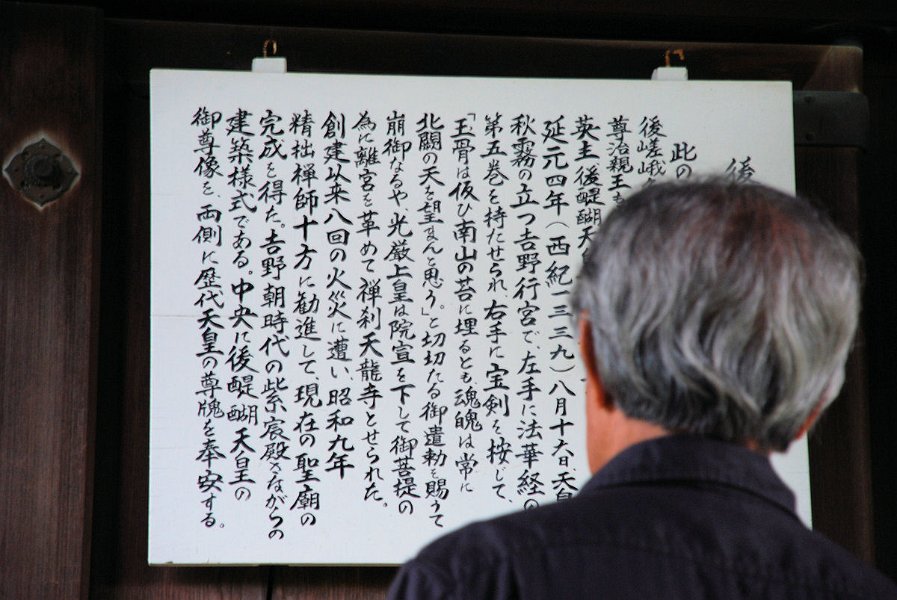 後
此の
後嵯峨
尊治親王
英主後醍醐天
延元四年(西紀一三三九)八月十六日、天皇
秋霧の立つ吉野行宮で、左手に法華経の
第五巻を持たせられ右手に宝剣を按じて、
「玉骨は仮ひ南山の苔に埋るとも魂魄は常に
北闕の天を望まんと思う。」と切切たる御遺勅を賜うて
崩御なるや、光厳上皇は院宣を下して御菩提の
為に離宮を革めて禅刹天龍寺とせられた。
創建以来八回の火災に遭い、昭和九年
精拙禅師十方に勧進して、現在の聖廟の
完成を得た。吉野朝時代の紫宸殿さながらの
建築様式である。中央に後醍醐天皇の
御尊像を、両側に歴代天皇の尊牌を奉安する。